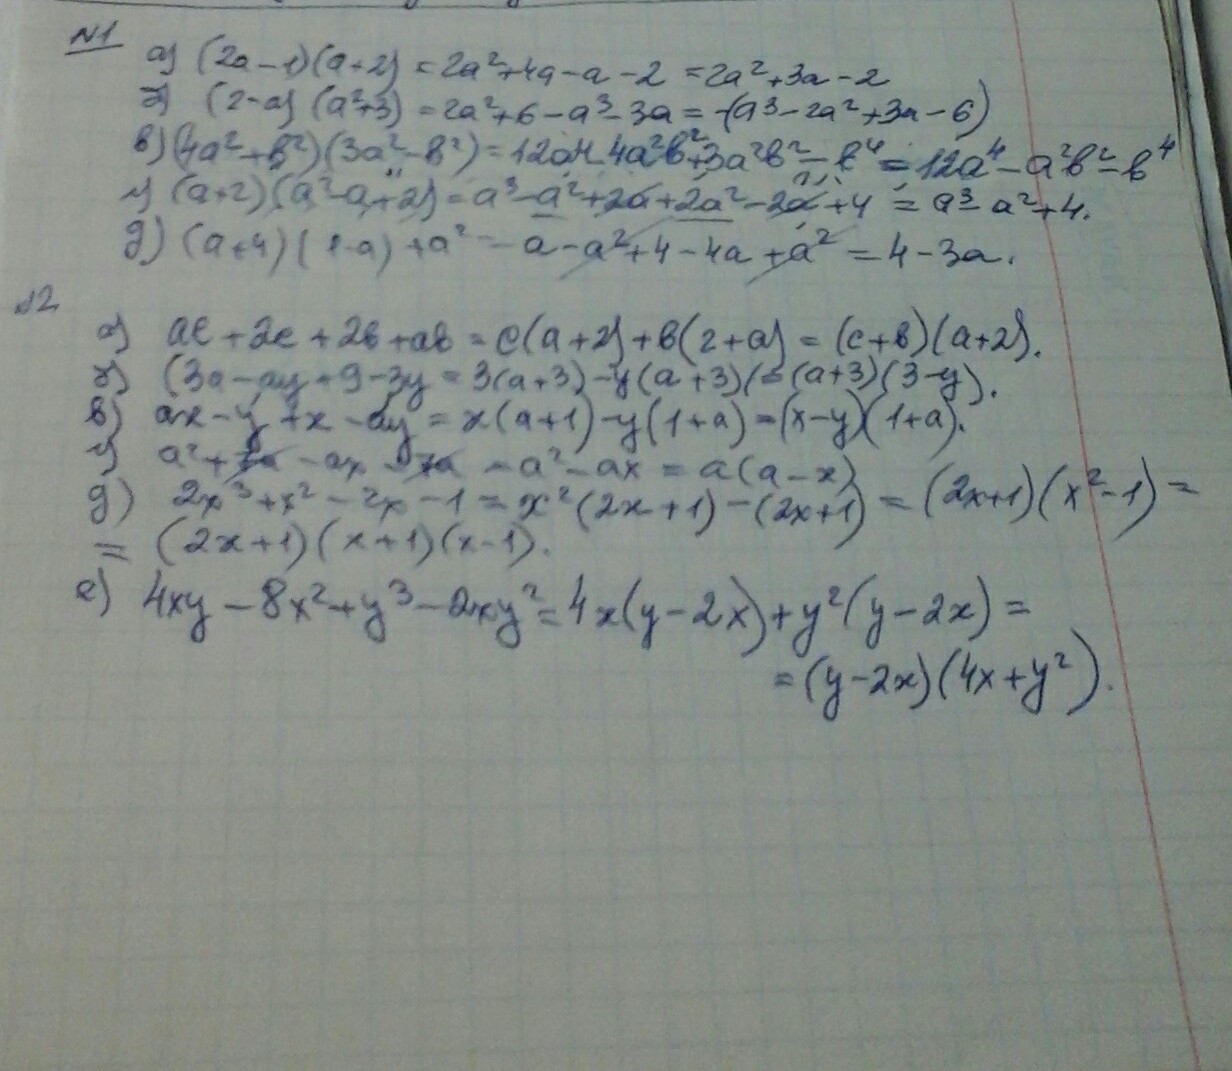 №1
а) (2a-1)(a+2) = 2a²+4a-a-2 = 2a²+3a-2
б) (2-a)(a²+3) = 2a²+6-a³-3a = -(a³-2a²+3a-6)
в) (4a²+b²)(3a²-b²) = 12a⁴-4a²b²+3a²b²-b⁴ = 12a⁴-a²b²-b⁴
г) (a+2)(a²-a+2) = a³-a²+2a+2a²-2a+4 = a³-a²+4.
д) (a+4)(1-a)+a² = a-a²+4-4a+a² = 4-3a.
№2
а) ac+2c+2b+ab = c(a+2)+b(2+a) = (c+b)(a+2).
б) (3a-ay+9-3y = 3(a+3)-y(a+3) = (a+3)(3-y).
в) ax-y+x-ay = x(a+1)-y(1+a) = (x-y)(1+a).
г) a²+7a-ax-7a = a²-ax = a(a-x)
д) 2x³+x²-2x-1 = x²(2x+1)-(2x+1) = (2x+1)(x²-1) =
= (2x+1)(x+1)(x-1).
е) 4xy-8x²+y³-2xy² = 4x(y-2x)+y²(y-2x) =
= (y-2x)(4x+y²).